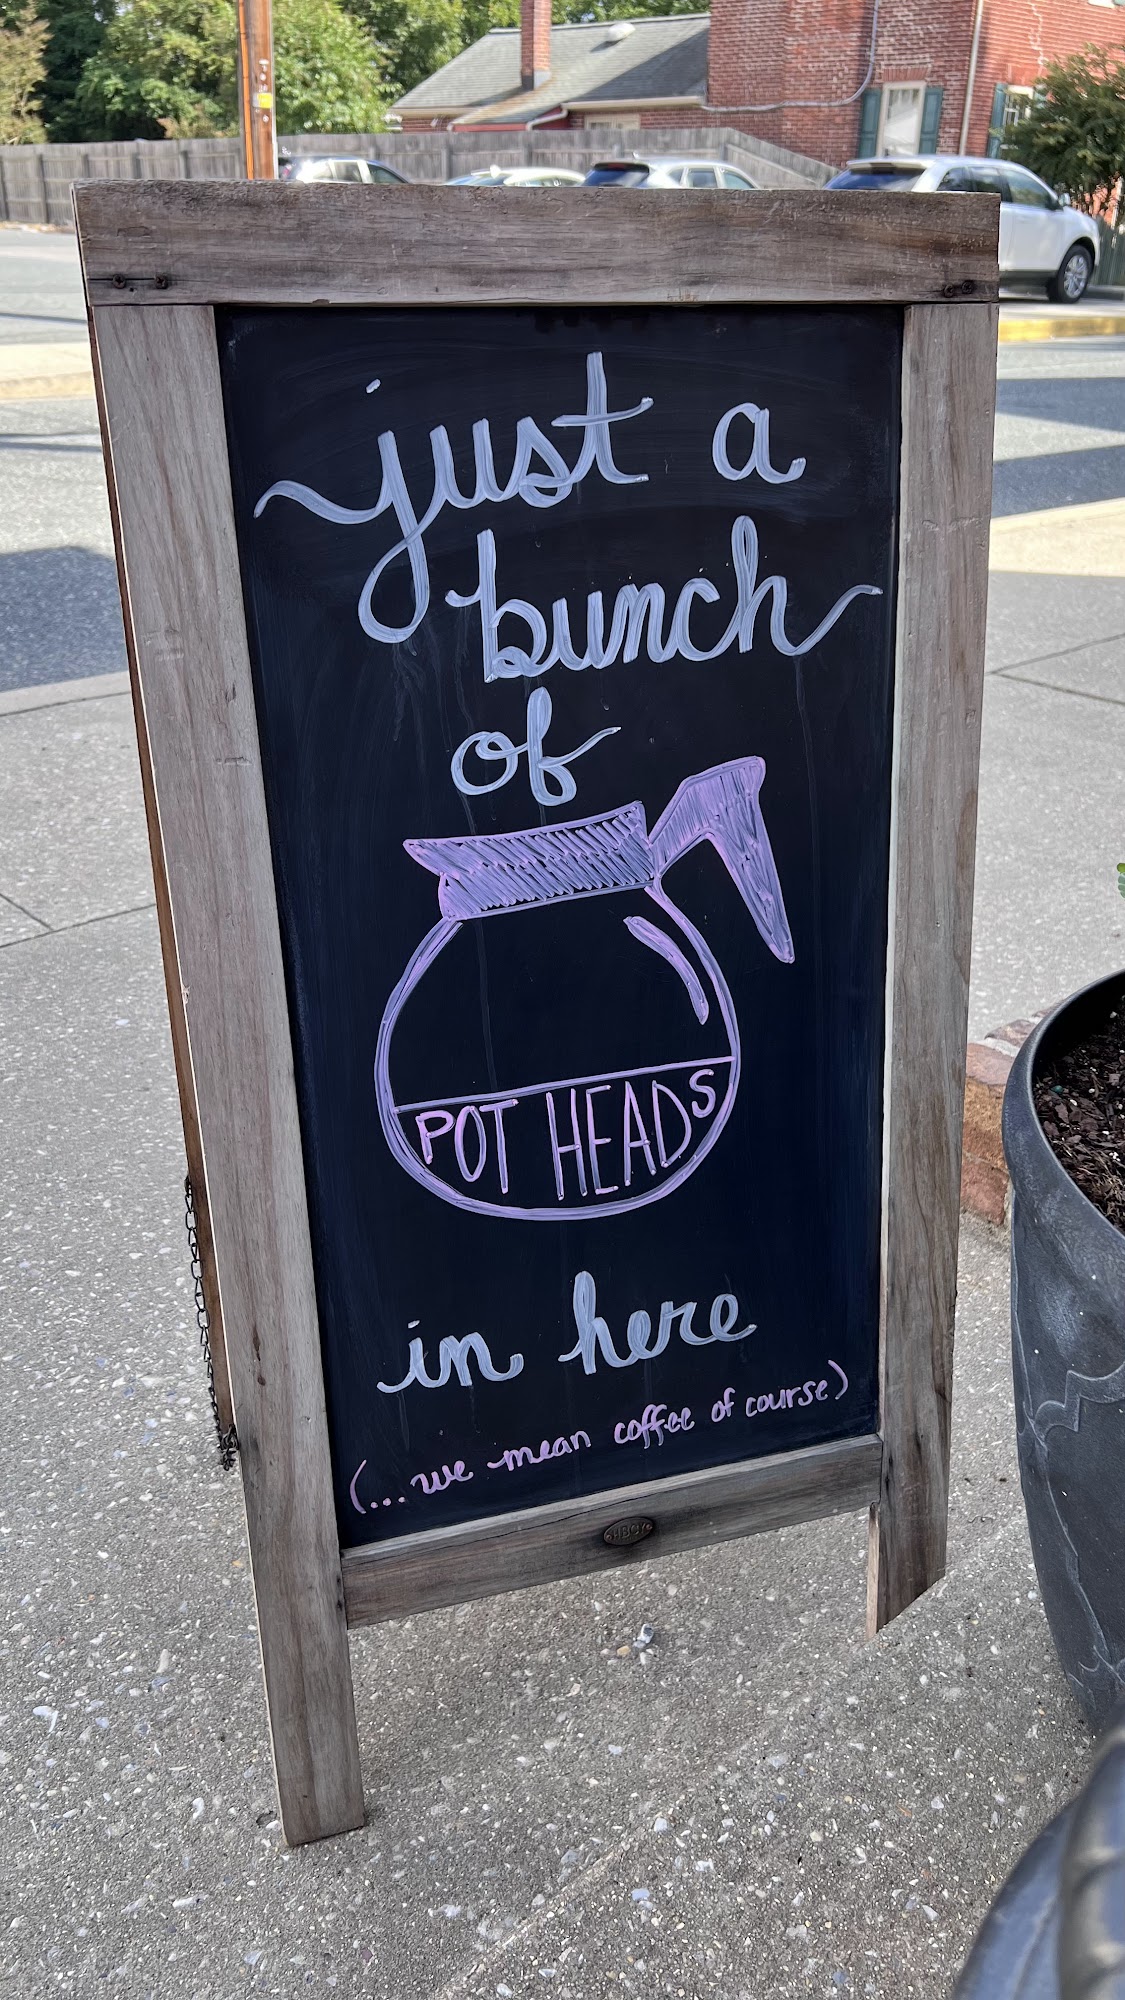 just a
bunch
of
POT HEADS
in here
(... we mean coffee of course)